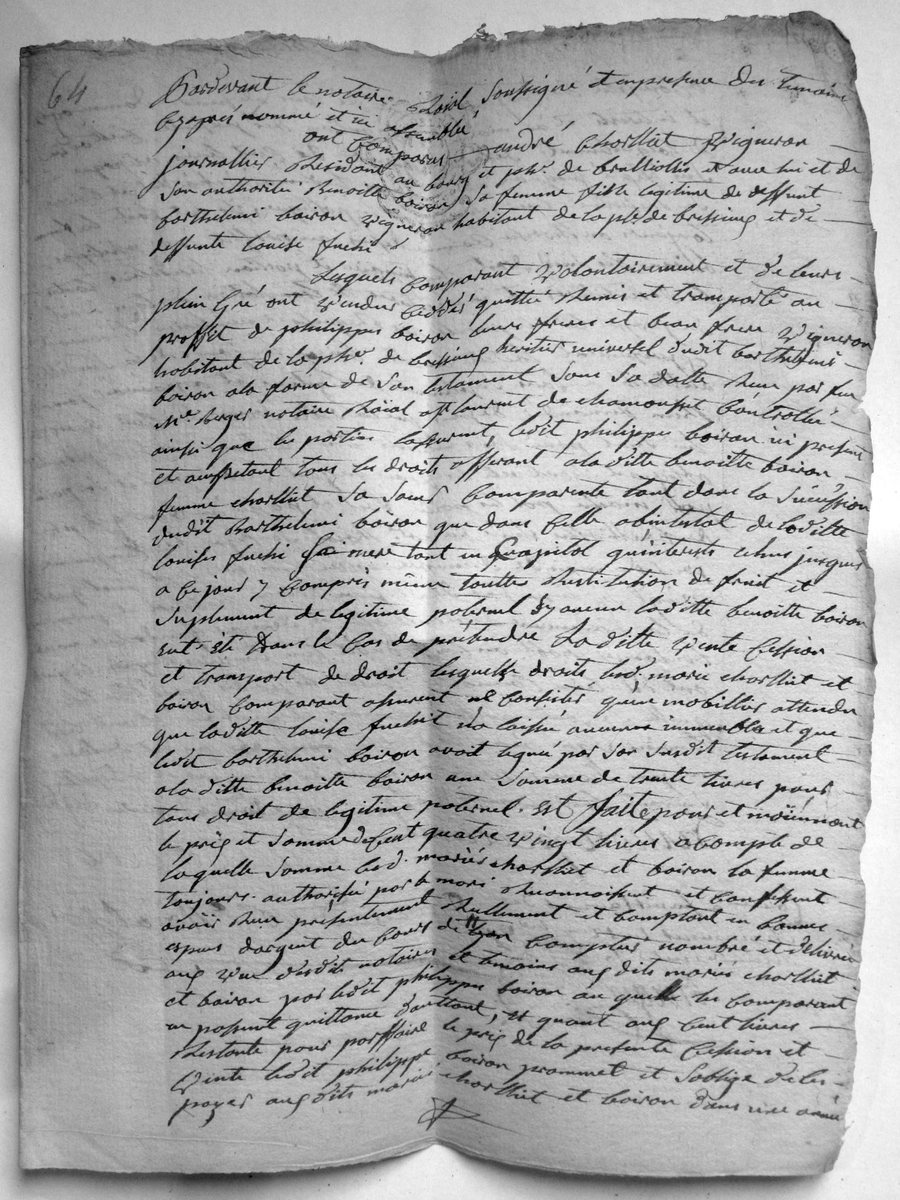 64
Pardevant le notaire Roial soussigné et en presence des temoins
cy apres nommé et ici assemblé
ont comparus andré charlliet vigneron
journallier Residant au bourg et phe. de brulliolles et avec lui et de
son authorité Benoitte boiron sa femme fille legitime de deffunt
barthelmi boiron vigneron habitant de la phe de bressieus et de
deffunte louise fuchi
Lesquels comparant volontairement et de leurs
plein gré ont vendus ceddés quitté Remis et transporté au
proffit de philippes boiron leurs freres et beau frere vigneron
habitant de la phe. de bressieus heritier universel dudit barthelmi
boiron a la forme de son testament sous sa datte Reçu par feu
Me. berger notaire Roial a st laurent de chamousset controllé
ainsi que les parties lassurent, ledit philippe boiron ici present
et acceptant tous les droits afferant a laditte benoitte boiron
femme charlliet sa sœur comparente tant dans la succession
dudit Barthelmi boiron que dans celle abintestat de laditte
louise fuchi sa mere tant en capitol quinterests echus jusques
a ce jour y compris même touttes Restitution de fruit et
suplement de legitime paternel sy aucun laditte benoitte boiron
eut été dans le cas de prétendre La ditte vente cession
et transport de droit lesquels droits led. marié charlliet et
boiron comparant assurent ne consister quen mobillier attendu
que laditte louise fuchi n'a laissée aucuns immeuble et que
ledit barthelmi boiron avoit legué par son susdit testament
a laditte benoitte boiron une somme de trente livres pour
tous droit de legitime paternel. Est faitte pour et moïennant
le prix et somme de cent quatre vingt livres a compte de
laquelle somme lesd. mariés charlliet et boiron la femme
toujours authorisée par le mari Reconnoissent et confessent
avoir Reçu présentement Reellement et comptant en bonnes
espece dargent du cours de compter nombré et délivrée
aux vue dudit notaire et temoins aux dits mariés charlliet
et boiron par ledit philippe boiron au quelle les comparant
en passent quittance dauttant, et quant aux cent livres
Restante pour parffaire le prix de la presente cession et
vente ledit philippe boiron promet et soblige de les
payer aux dits mariés charlliet et boiron dans une année